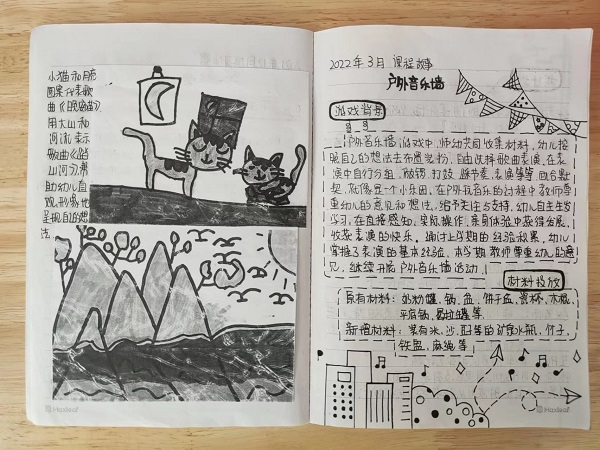 小猫和月亮
图案代表歌
曲《摇篮曲》
用大山和
河流表示
歌曲《踏
山河》,帮
助幼儿直
观,形象地
呈现自己的想
法
Hasleaf
2022年3月 课程故事
户外音乐墙
游戏背景
户外音乐墙游戏中,师幼共同收集材料,幼儿按
照自己的想法去布置装扮、自由选择歌曲表演,在表
演中自行分组、敲锣、打鼓、脚步表、表演等等,配合默
契,就像是一个小乐团,在户外玩音乐的过程中,教师尊
重幼儿的意见和想法,给予关注与支持,幼儿自主生发
学习,在直接感知,实际操作,亲身体验中获得发展,
收获表演的快乐。通过上学期的经验积累,幼儿
掌握了表演的基本经验,本学期教师尊重幼儿的意
见,继续开展户外音乐墙活动。
材料投放
原有材料:奶粉罐、锅、盆、饼干盒、瓷杯、木棍、
平底锅、易拉罐等
新增材料:装有米、沙、豆等的矿泉水瓶、竹子、
铁盆、麻绳等
Hasleaf